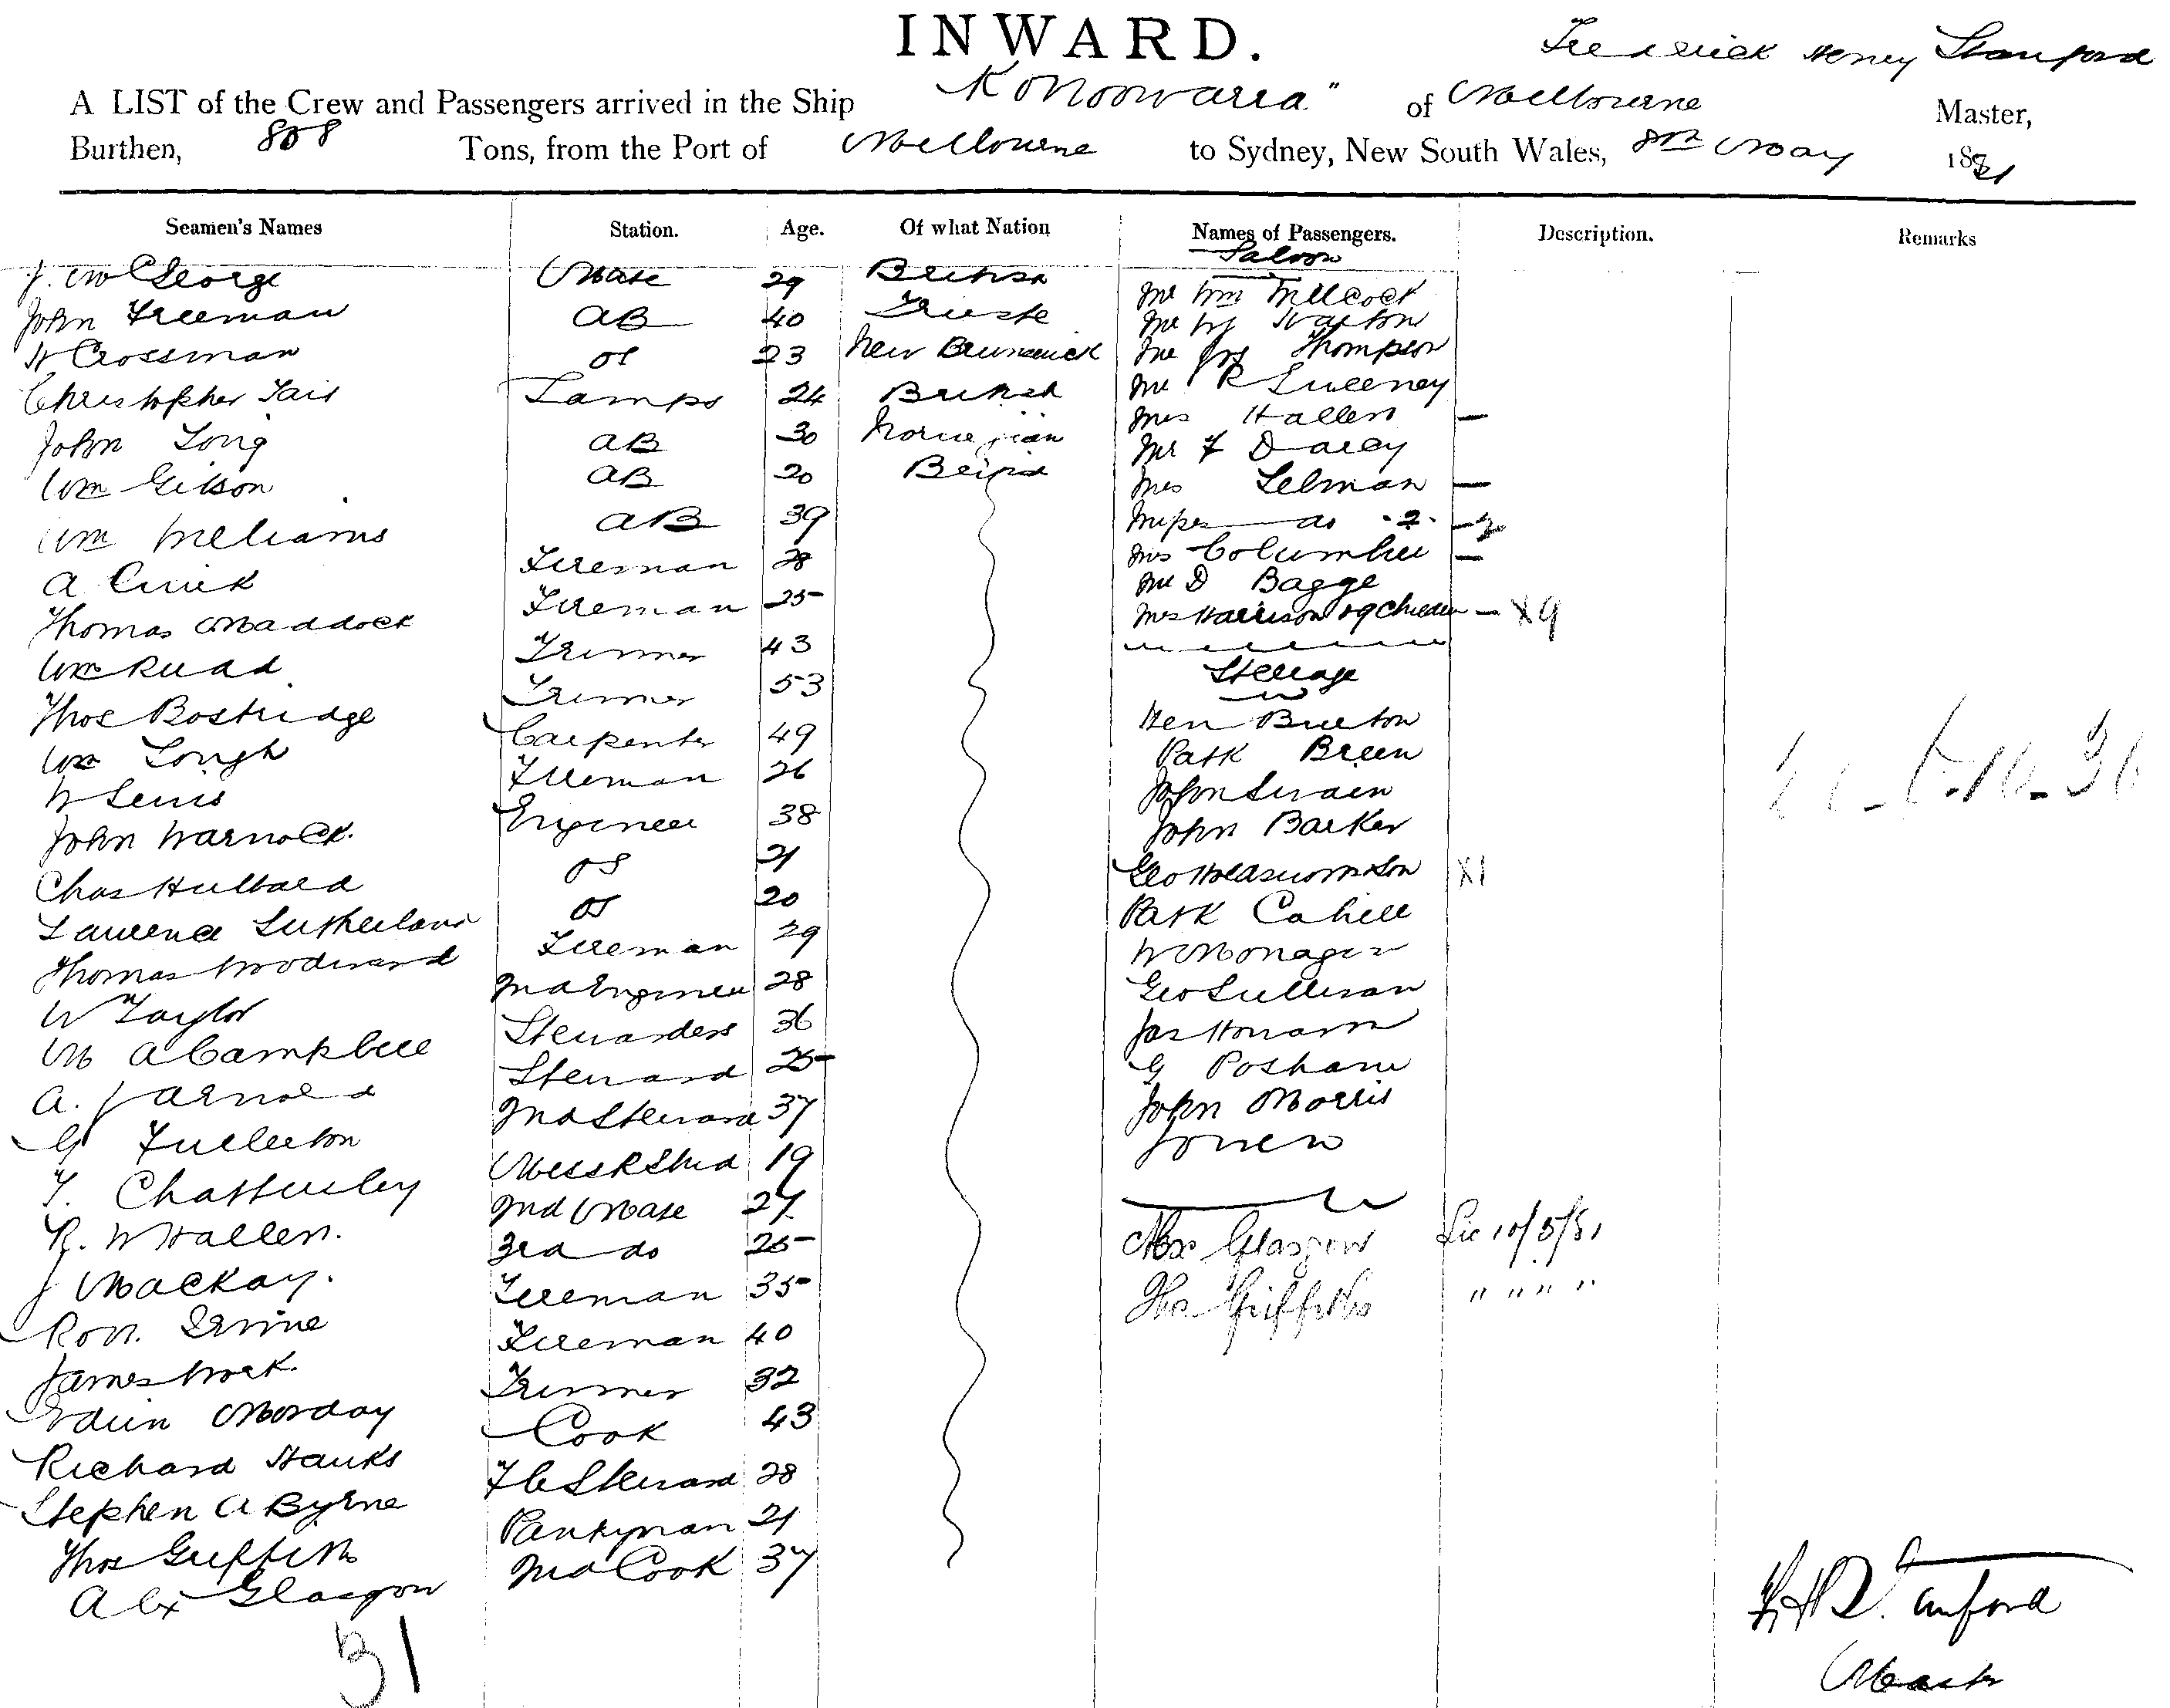 INWARD.
Frederick Henry Stanford
A LIST of the Crew and Passengers arrived in the Ship "Konoowarra" of Melbourne Master,
Burthen, 808 Tons, from the Port of Melbourne to Sydney, New South Wales, 8th May 1881
Seamen's Names Station. Age. Of what Nation Names of Passengers. Description. Remarks
Saloon
J. McGeorge Mate 29 British
John Freeman AB 40 Trieste
W Crossman OS 23 New Brunswick
Christopher Tait Lamps 24 British
John Long AB 30 Norwegian
Wm Gibson AB 20 British
Wm Williams AB 39
A Quick Fireman 28
Thomas Maddock Fireman 25
Wm Ruad Trimmer 43
Thos Bostridge Trimmer 53
Wm Lough Carpenter 49
W Lewis Fireman 26
John Warnock. Engineer 38
Chas Hubbard OS 21
Laurence Sutherland OS 20
Thomas Woodward Fireman 29
W Taylor 2nd Engineer 28
M A Campbell Stewardess 36
A. J Arnold Steward 25
G Fullerton 2nd Steward 37
T. Chatterley Mess R Stwd 19
R. W Hallen. 2nd Mate 27
J Mackay. 3rd do 25
Robt. Irvine Fireman 35
James Work. Fireman 40
Edwin Monday Trimmer 32
Richard Hanks Cook 43
Stephen A Byrne F C Steward 28
Thos Griffiths Pantryman 21
Alex Glasgow 2nd Cook 37
31
Mr Wm
Mr Wj Watson
Mr Jas Thompson
Mr R Sweeney
Mrs Hallen –
Mr F Darcy
Mrs Selman –
Misses do 2 – 2
Mrs –
Mr D Bagge
Mrs Harrison & 9 Children – X9
Steerage
Hen Burton
Patk Breen
John Swain
John Barker
Geo Holdsworth & Son X1
Patk Cahill
W Monagin
Geo Sullivan
Jas Howarn
G Posham
John Morris
Jones
Alex Glasgow Lic 10/5/81
Thos Griffiths " " " "
F. H Stanford
Master